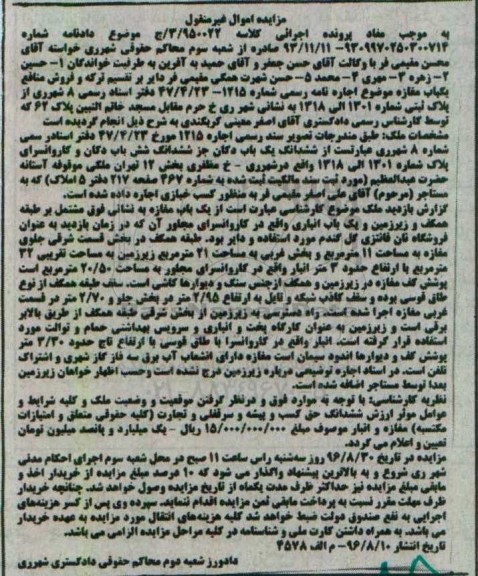 مزایده اموال غیرمنقول
به موجب مفاد پرونده اجرائی کلاسه ۳/۹۵۰۰۲۲/ج موضوع دادنامه شماره
۹۳۰۹۹۷۰۲۵۰۳۰۰۷۱۴-۹۳/۱۱/۱۱ صادره از شعبه سوم محاکم حقوقی شهرری خواسته آقای
محسن مقیمی فر با وکالت آقای حسن جعفر و آقای حمید به آفرین به طرفیت خواندگان ۱- حسین
۲- زهره ۳- مهری ۴- محمد ۵- حسن شهرت همگی مقیمی فر دایر بر تقسیم ترکه و فروش منافع
یکباب مغازه موضوع اجاره نامه رسمی شماره ۱۲۱۵-۴۷/۴/۲۳ دفتر اسناد رسمی ۸ شهرری از
پلاک ثبتی شماره ۱۳۰۱ الی ۱۳۱۸ به نشانی شهر ری خ حرم مقابل مسجد خاتم النبین پلاک ۶۲ که
توسط کارشناس رسمی دادگستری آقای اصغر معینی کریکندی به شرح ذیل انجام گردیده است
مشخصات ملک: طبق مندرجات تصویر سند رسمی اجاره ۱۲۱۵ مورخ ۴۷/۴/۲۳ دفتر اسنادرسمی
شماره ۸ شهرری عبارتست از ششدانگ یک باب دکان جزء ششدانگ شش باب دکان و کاروانسرای
پلاک شماره ۱۳۰۱ الی ۱۳۱۸ واقع درشهرری - خ مظفری بخش ۱۲ تهران ملکی موقوفه آستانه
حضرت عبدالعظیم (مورد ثبت سند مالکیت ثبت شده به شماره ۴۶۷ صفحه ۲۱۷ دفتر ۵ املاک) که به
مستاجر (مرحوم) آقای علی اصغر مقیمی فر به منظور کسب خبازی اجاره داده شده است.
گزارش بازدید ملک موضوع کارشناسی عبارت است از یک باب مغازه به نشانی فوق مشتمل بر طبقه
همکف و زیرزمین و یک باب انباری واقع در کاروانسرای مجاور آن که در زمان بازدید به عنوان
فروشگاه نان فانتزی گل گندم مورد استفاده و دایر بود. طبقه همکف در بخش قسمت شرقی جلوی
مغازه به مساحت ۱۱ مترمربع و بخش غربی به مساحت ۲۱ مترمربع زیرزمین به مساحت تقریبی ۳۲
مترمربع با ارتفاع حدود ۳ متر انبار واقع در کاروانسرای مجاور به مساحت ۲۰/۵۰ مترمربع است
پوشش کف مغازه در زیرزمین و همکف ازجنس سنگ و دیوارها کاشی است. سقف طبقه همکف از نوع
طاق قوسی بوده و سقف کاذب شبکه و تایل به ارتفاع ۲/۹۵ متر در بخش جلو و ۲/۷۰ متر در قسمت
غربی مغازه اجرا شده است. راه دسترسی به زیرزمین از بخش شرقی طبقه همکف از طریق بالابر
برقی است و زیرزمین به عنوان کارگاه پخت و انباری و سرویس بهداشتی حمام و توالت مورد
استفاده قرار گرفته است. انبار واقع در کاروانسرا با طاق قوسی با ارتفاع تاج حدود ۳/۳۰ متر
پوشش کف و دیوارها اندود سیمان است مغازه دارای انشعاب آب برق سه فاز گاز شهری و اشتراک
تلفن است. در اسناد اجاره توضیحی درباره زیرزمین درج نشده است وحسب اظهار خواهان زیرزمین
بعدا توسط مستاجر اضافه شده است.
نظریه کارشناسی: با توجه به موارد فوق و درنظر گرفتن موقعیت و وضعیت ملک و کلیه شرایط و
عوامل موثر ارزش ششدانگ حق کسب و پیشه و سرقفلی و تجارت (کلیه حقوقی متعلق و امتیازات
مکتسبه) مغازه و انبار موصوف مبلغ ۱۵/۰۰۰/۰۰۰/۰۰۰ ریال - یک میلیارد و پانصد میلیون تومان
تعیین و اعلام می گردد.
مزایده در تاریخ ۹۶/۸/۳۰ روز سه‌شنبه راس ساعت ۱۱ صبح در محل شعبه سوم اجرای احکام مدنی
شهر ری شروع و به بالاترین پیشنهاد واگذار می شود که ۱۰ درصد مبلغ مزایده از خریدار اخذ و
مابقی مبلغ مزایده نیز حداکثر ظرف مدت یکماه از تاریخ مزایده وصول خواهد شد. چنانچه خریدار
ظرف مهلت مقرر نسبت به پرداخت مابقی ثمن مزایده اقدام ننماید. سپرده وی پس از کسر هزینه‌های
اجرایی به نفع صندوق دولت ضبط خواهد شد کلیه هزینه‌های انتقال مورد مزایده به عهده خریدار
می باشد. به همراه داشتن کارت ملی و شناسنامه در کلیه مراحل مزایده الزامی می باشد.
تاریخ انتشار ۹۶/۸/۱۰- م الف ۴۵۷۸
دادورز شعبه دوم محاکم حقوقی دادگستری شهرری